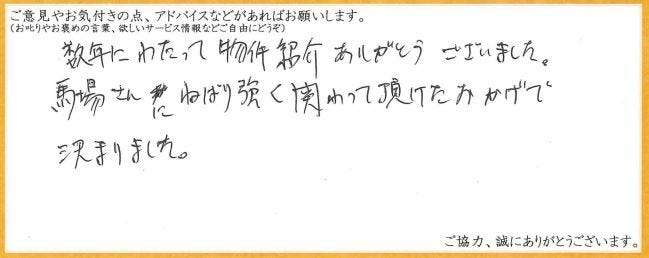 ご意見やお気付きの点、アドバイスなどがあればお願いします。
(お叱りやお褒めの言葉、欲しいサービス情報などご自由にどうぞ)
数年にわたって物件紹介ありがとうございました。
馬場さんに ねばり強く関わって頂けたおかげで
決まりました。
ご協力、誠にありがとうございます。